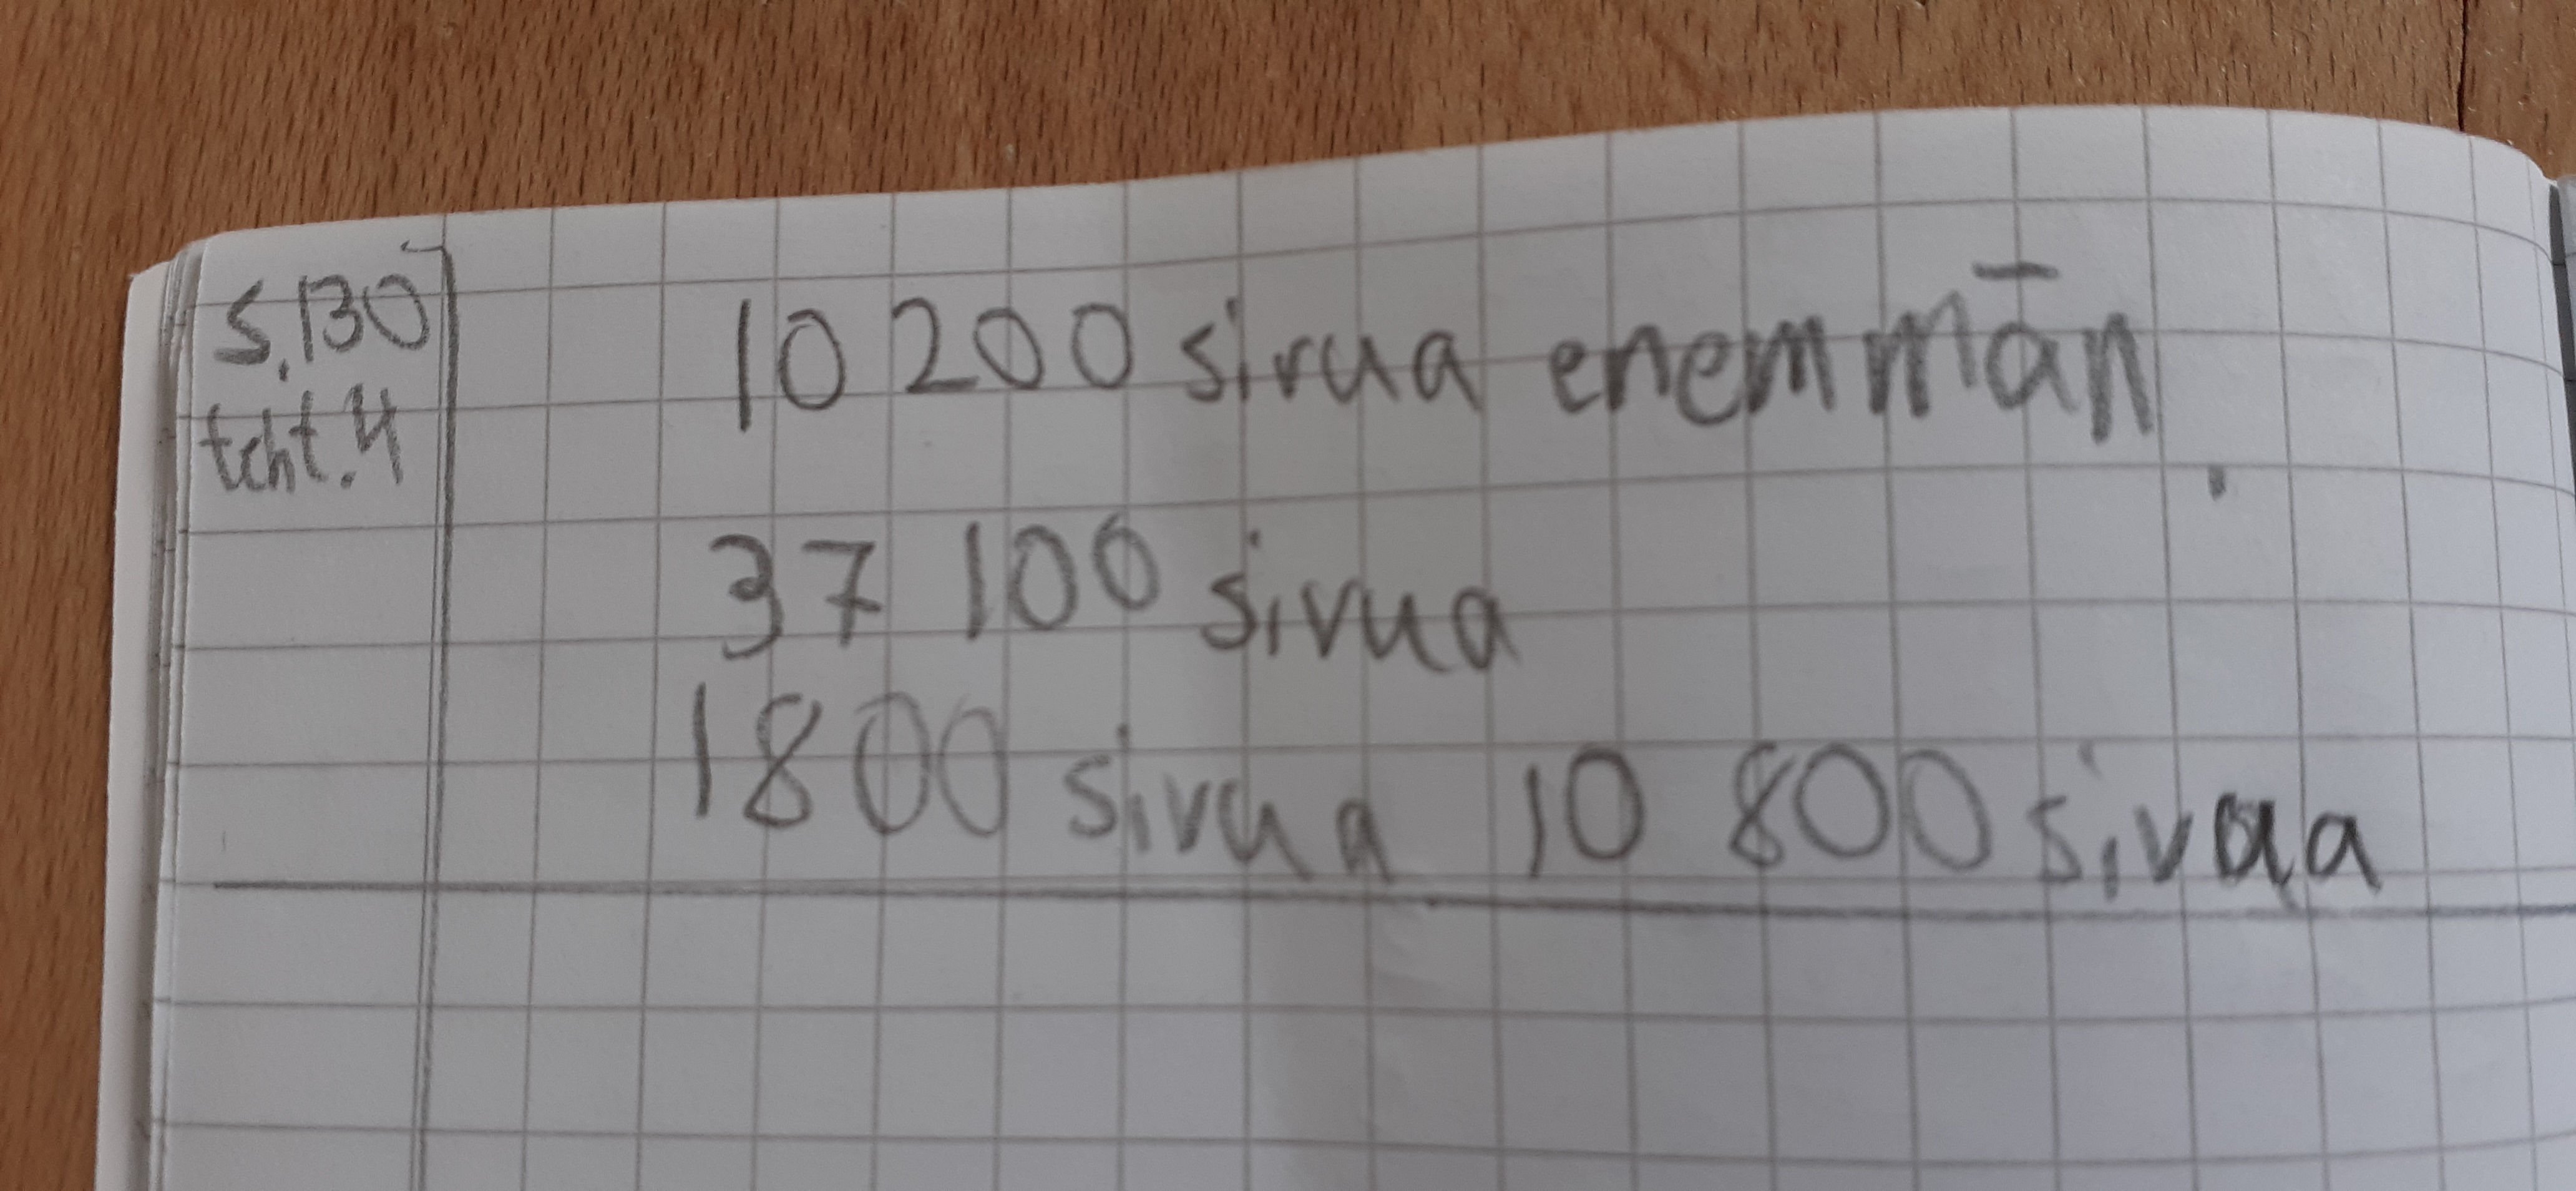 s.130
teht.4
10 200 sivua enemmän.
37 100 sivua
1800 sivua 10 800 sivua